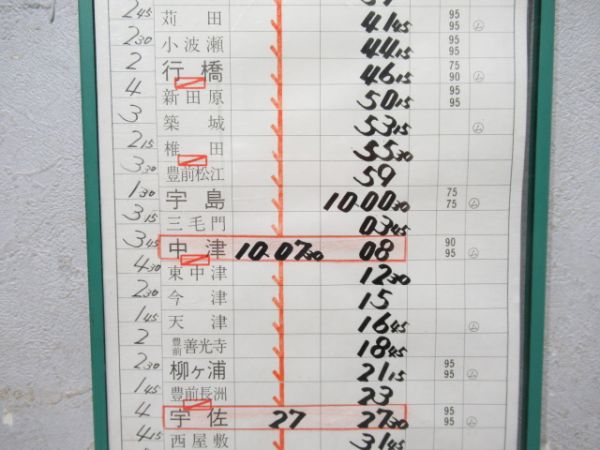 2 45 苅田 41 45 95 95 ㋰
2 30 小波瀬 44 15 95 95
2 行橋 46 15 75 90 ㋰
4 新田原 50 15 95 95
3 築城 53 15 ㋰
2 15 椎田 55 30
3 30 豊前松江 59
1 30 宇島 10.00 30 75 75 ㋰
3 15 三毛門 03 45
3 45 中津 10.07 30 08 90 95 ㋰
4 30 東中津 12 30
2 30 今津 15
1 45 天津 16 45 ㋰
2 豊前善光寺 18 45
2 30 柳ヶ浦 21 15 95 95 ㋰
1 45 豊前長洲 23
4 宇佐 27 27 30 95 95 ㋰
4 15 西屋敷 31 45